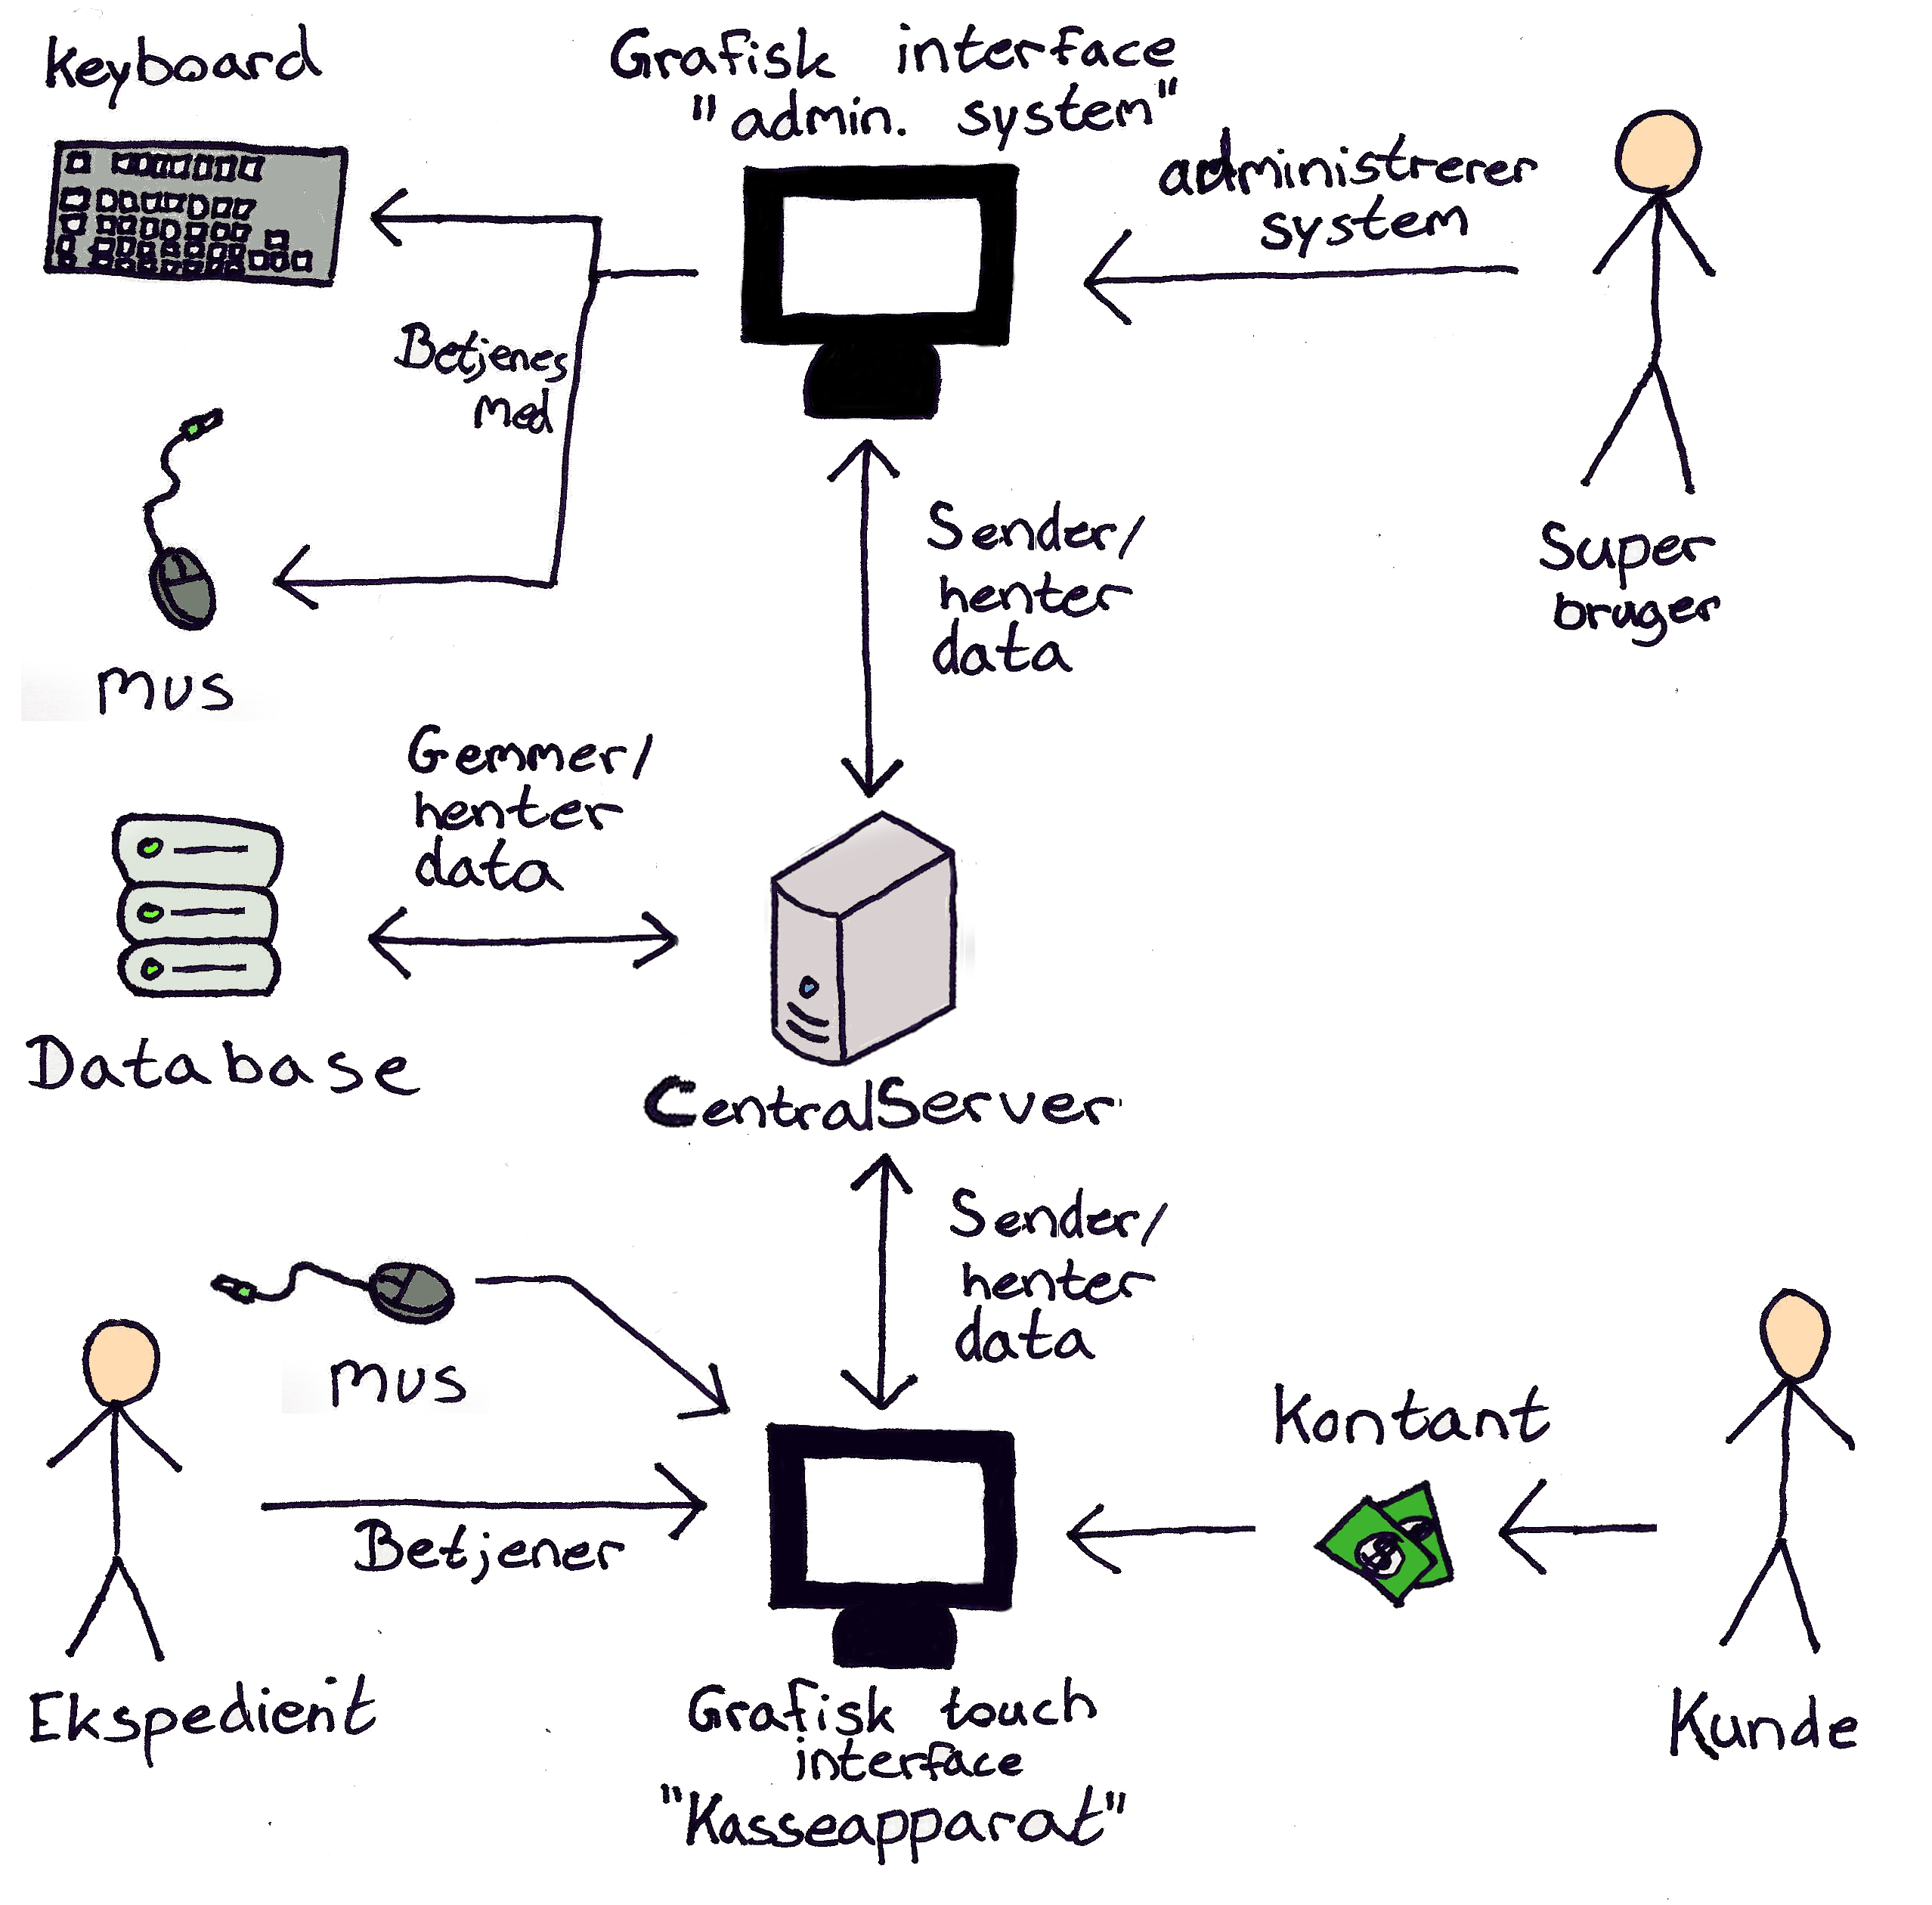 Keyboard
Grafisk interface
"admin. system"
administrerer
system
Betjenes
med
Super
bruger
Sender/
henter
data
mus
Gemmer/
henter
data
Database
CentralServer
Sender/
henter
data
mus
Kontant
Betjener
Ekspedient
Grafisk touch
interface
"Kasseapparat"
Kunde